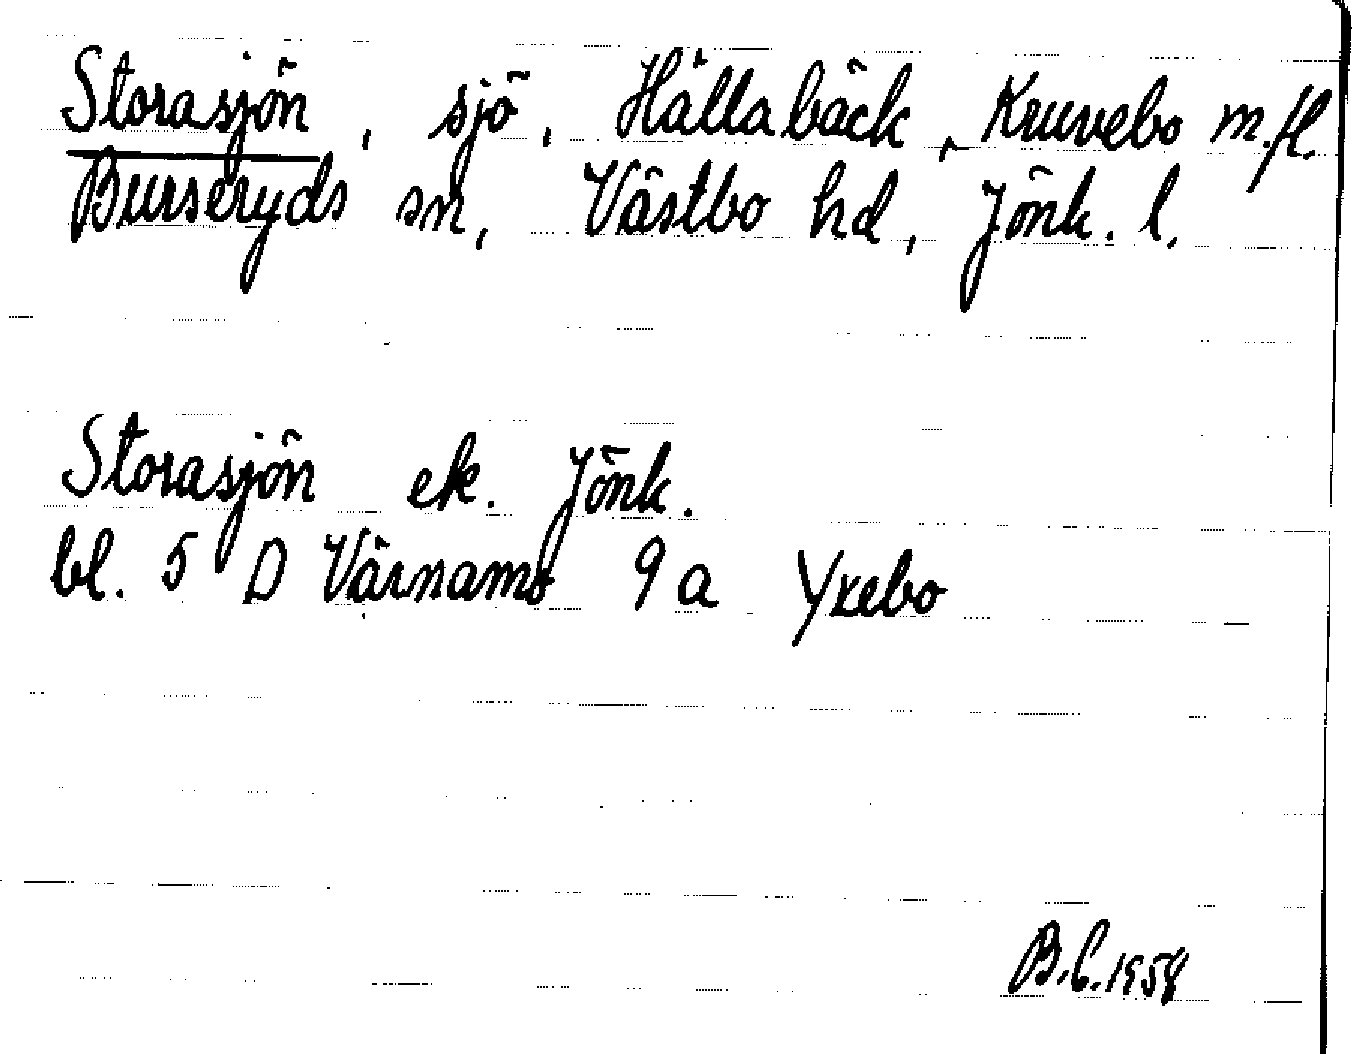 Storasjön, sjö, Hällabäck, Kruvebo m.fl.
Burseryds sn, Västbo hd, Jönk. l.
Storasjön ek. Jönk.
bl. 5 D Värnamo 9 a Yxebo
B.C. 1958